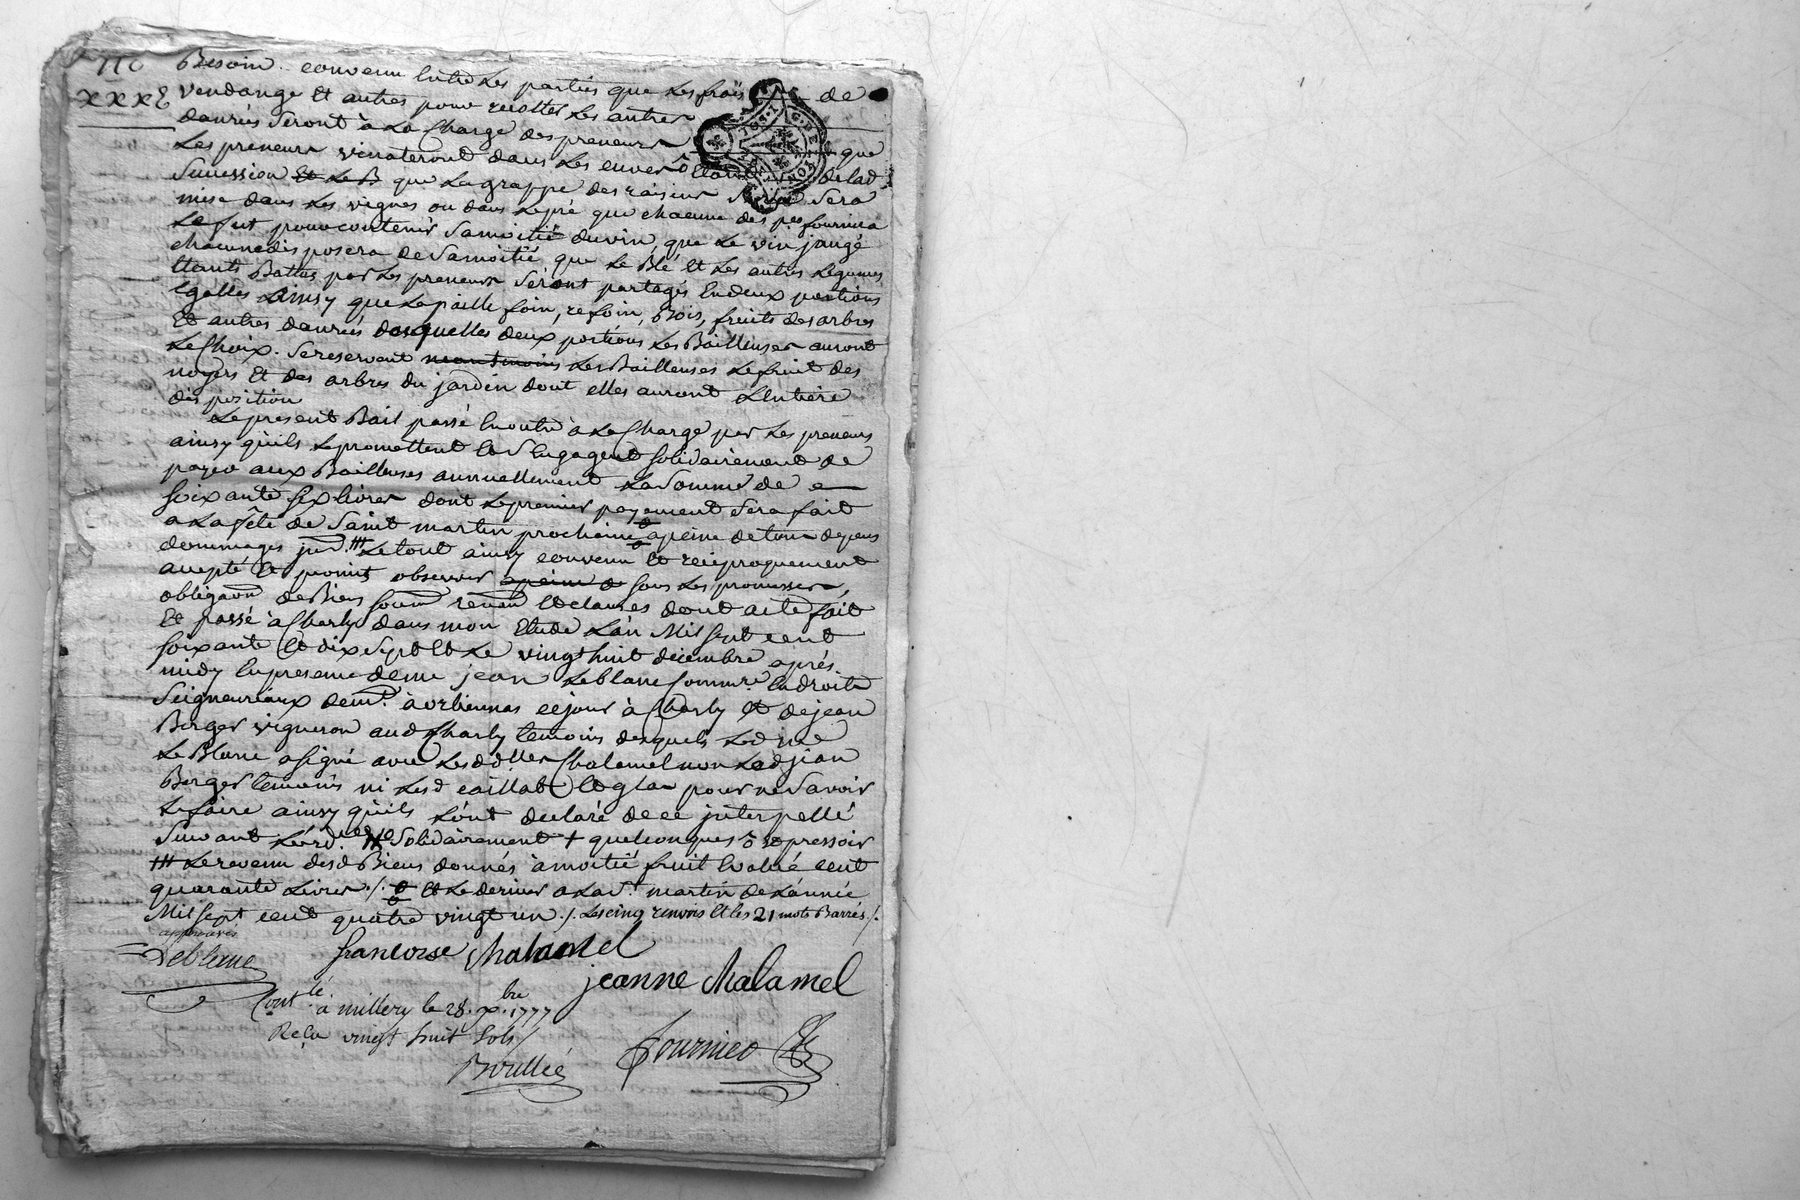 116
xxxE
Besoin. convenu Entre Les parties que Les frais de
vendange Et autres pour recolter Les autres
danrées Seront à La Charge des preneurs que
Les preneurs vinateront dans Les cuves delad
Succession Et Le B que La grappe des raisins Sera
mise dans Les vignes ou dans Le pré que chacune des pes fournira
Le fut pour contenir Sa moitié du vin, que Le vin jaugé
chacune disposera de Sa moitié que Le Blé Et Les autres Legumes
Etants Battus par Les preneurs Seront partagés En deux portions
Egalles Ainsy que La paille foin, refoin, Bois, fruits des arbres
Et autres danrées desquelles deux portions Les Bailleuses auront
Le Choix. Se reservent neantmoins Les Bailleuses Le fruit des
noyers Et des arbres du jardin dont elles auront L'entiere
disposition
Le present Bail passé En outre à La Charge par Les preneurs
ainsy qu'ils Le promettent Et S'Engagent Solidairement de
payer aux Bailleuses annuellement La Somme de
Soixante Six Livres dont Le premier payement Sera fait
a La fête de Saint martin prochaine a peine de tous depens
dommages Le tout ainsy convenu Et reciproquement
accepté Et promis observer a peine d sous Les promesses,
obligaon de Biens Et clauses dont acte fait
Et passé à Charly dans mon Etude L'an Mil Sept cent
Soixante Et dix Sept Et Le vingt huit decembre aprés
midy En presence de me jean Leblanc Commre En droits
Seigneuriaux demt à orlienas ce jour à Charly Et de jean
Berger vigneron aud Charly temoins desquels Led me
Le Blanc a signé avec Lesd dlles Chalamel non Led jean
Berger temoins ni Lesd caillat Et gla pour ne Savoir
Le faire ainsy qu'ils L'ont declaré de ce interpellé
Suivant L'ord. Solidairement + quelconques pressoir
## Le revenu desd Biens donnés à moitié fruit Evalué cent
quarante Livres ./. Et Le dernier a La St martin de L'année
Mil Sept cent quatre vingt un ./. Les cinq renvois Et les 21 mots Barrés ./.
approuvés
Leblanc francoise chalamel
jeanne chalamel
Contlé à millery le 28. xbre. 1777
Reçu vingt huit Sols
Boullée
fournier